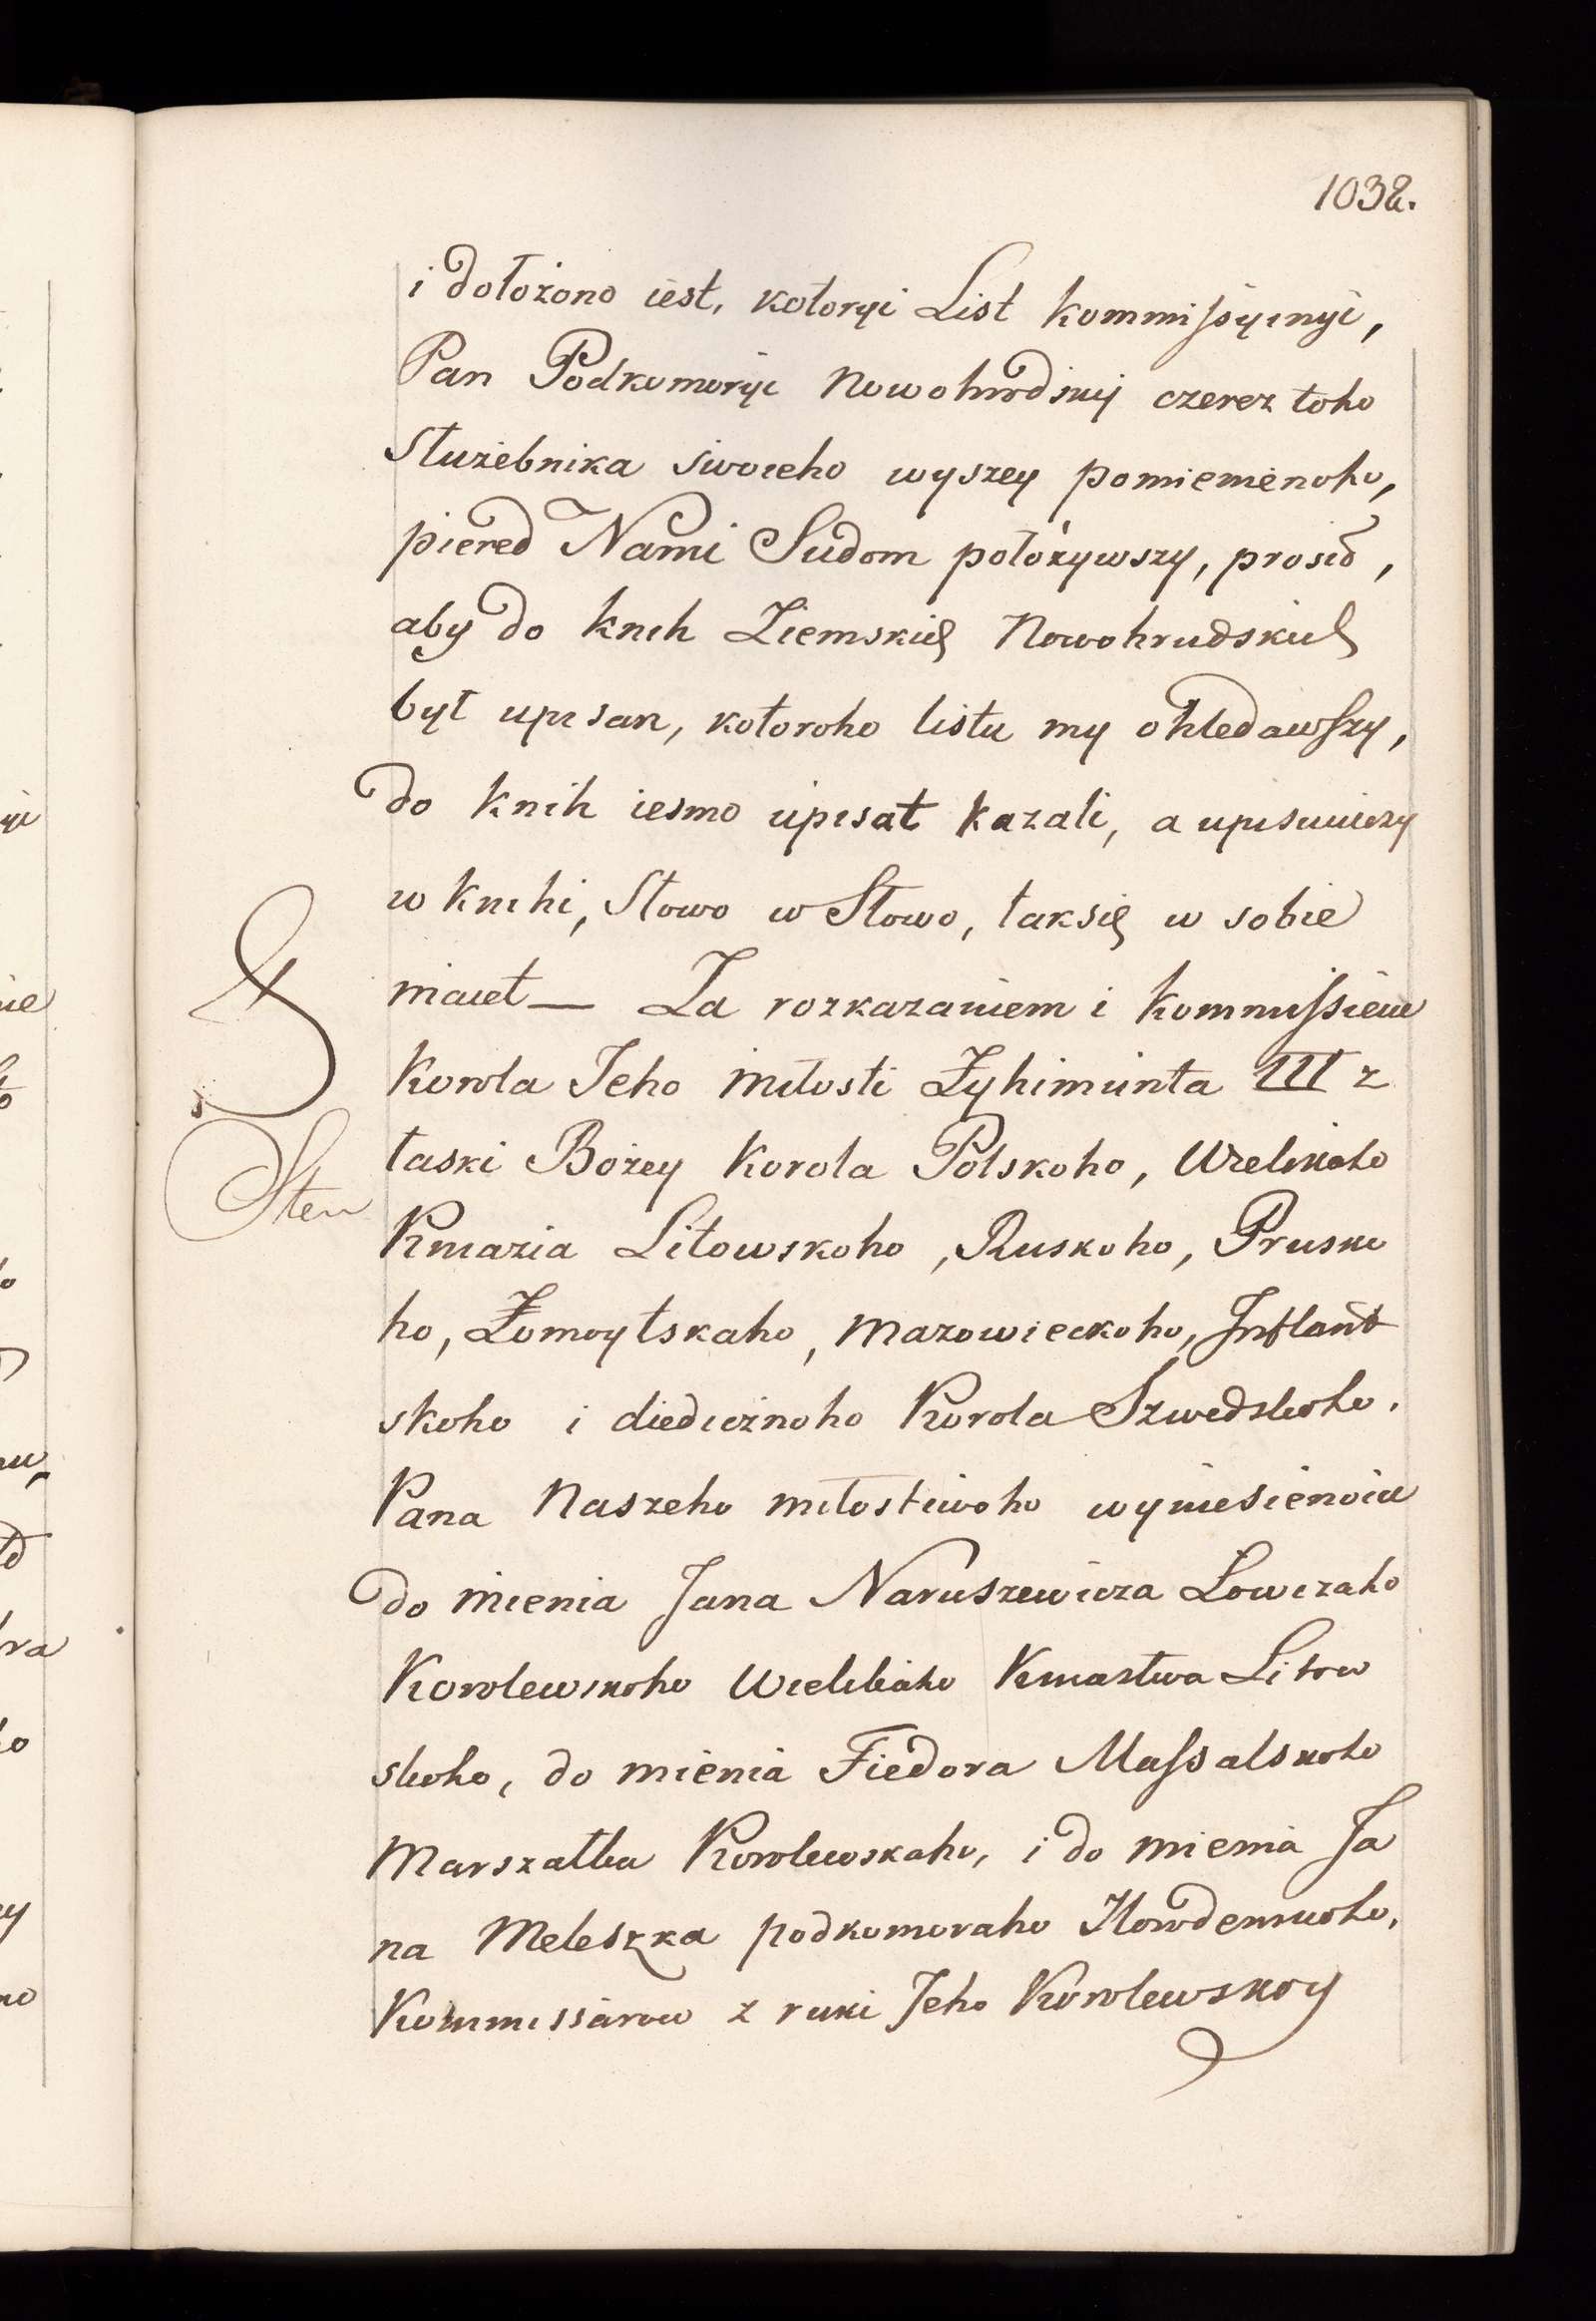 1032.
i dołożono iest, kotoryi List kommissyinyi,
Pan Podkomoryi Nowohrodskij czerez toho
Służebnika swoieho wyszey pomienienoho,
piered Nami Sudom położywszy, prosił,
aby do knih Ziemskich Nowohrudskich
był upisan, kotoroho listu my ohledawszy,
do knih iesmo upisat kazali, a upisuiuczy
w knihi, Słowo w Słowo, tak się w sobie
maiet — Za rozkazaniem i kommissieiu
Korola Jeho miłosti Żyhimunta III z
łaski Bożey Korola Polskoho, Wielikoho
Kniazia Litowskoho, Ruskoho, Prusko
ho, Żomoytskaho, Mazowieckoho, Inflant
skoho i diedicznoho Korola Szwedskoho.
Pana Naszeho miłostiwoho wyniesienoiu
do mienia Jana Naruszewicza Łowczaho
Korolewskoho Wielikaho Kniastwa Litow
skoho, do mienia Fiedora Massalskoho
Marszałka Korolewskaho, i do mienia Ja
na Meleszka podkomoraho
Kommissarow z ruki Jeho Korolewskoy
Sten